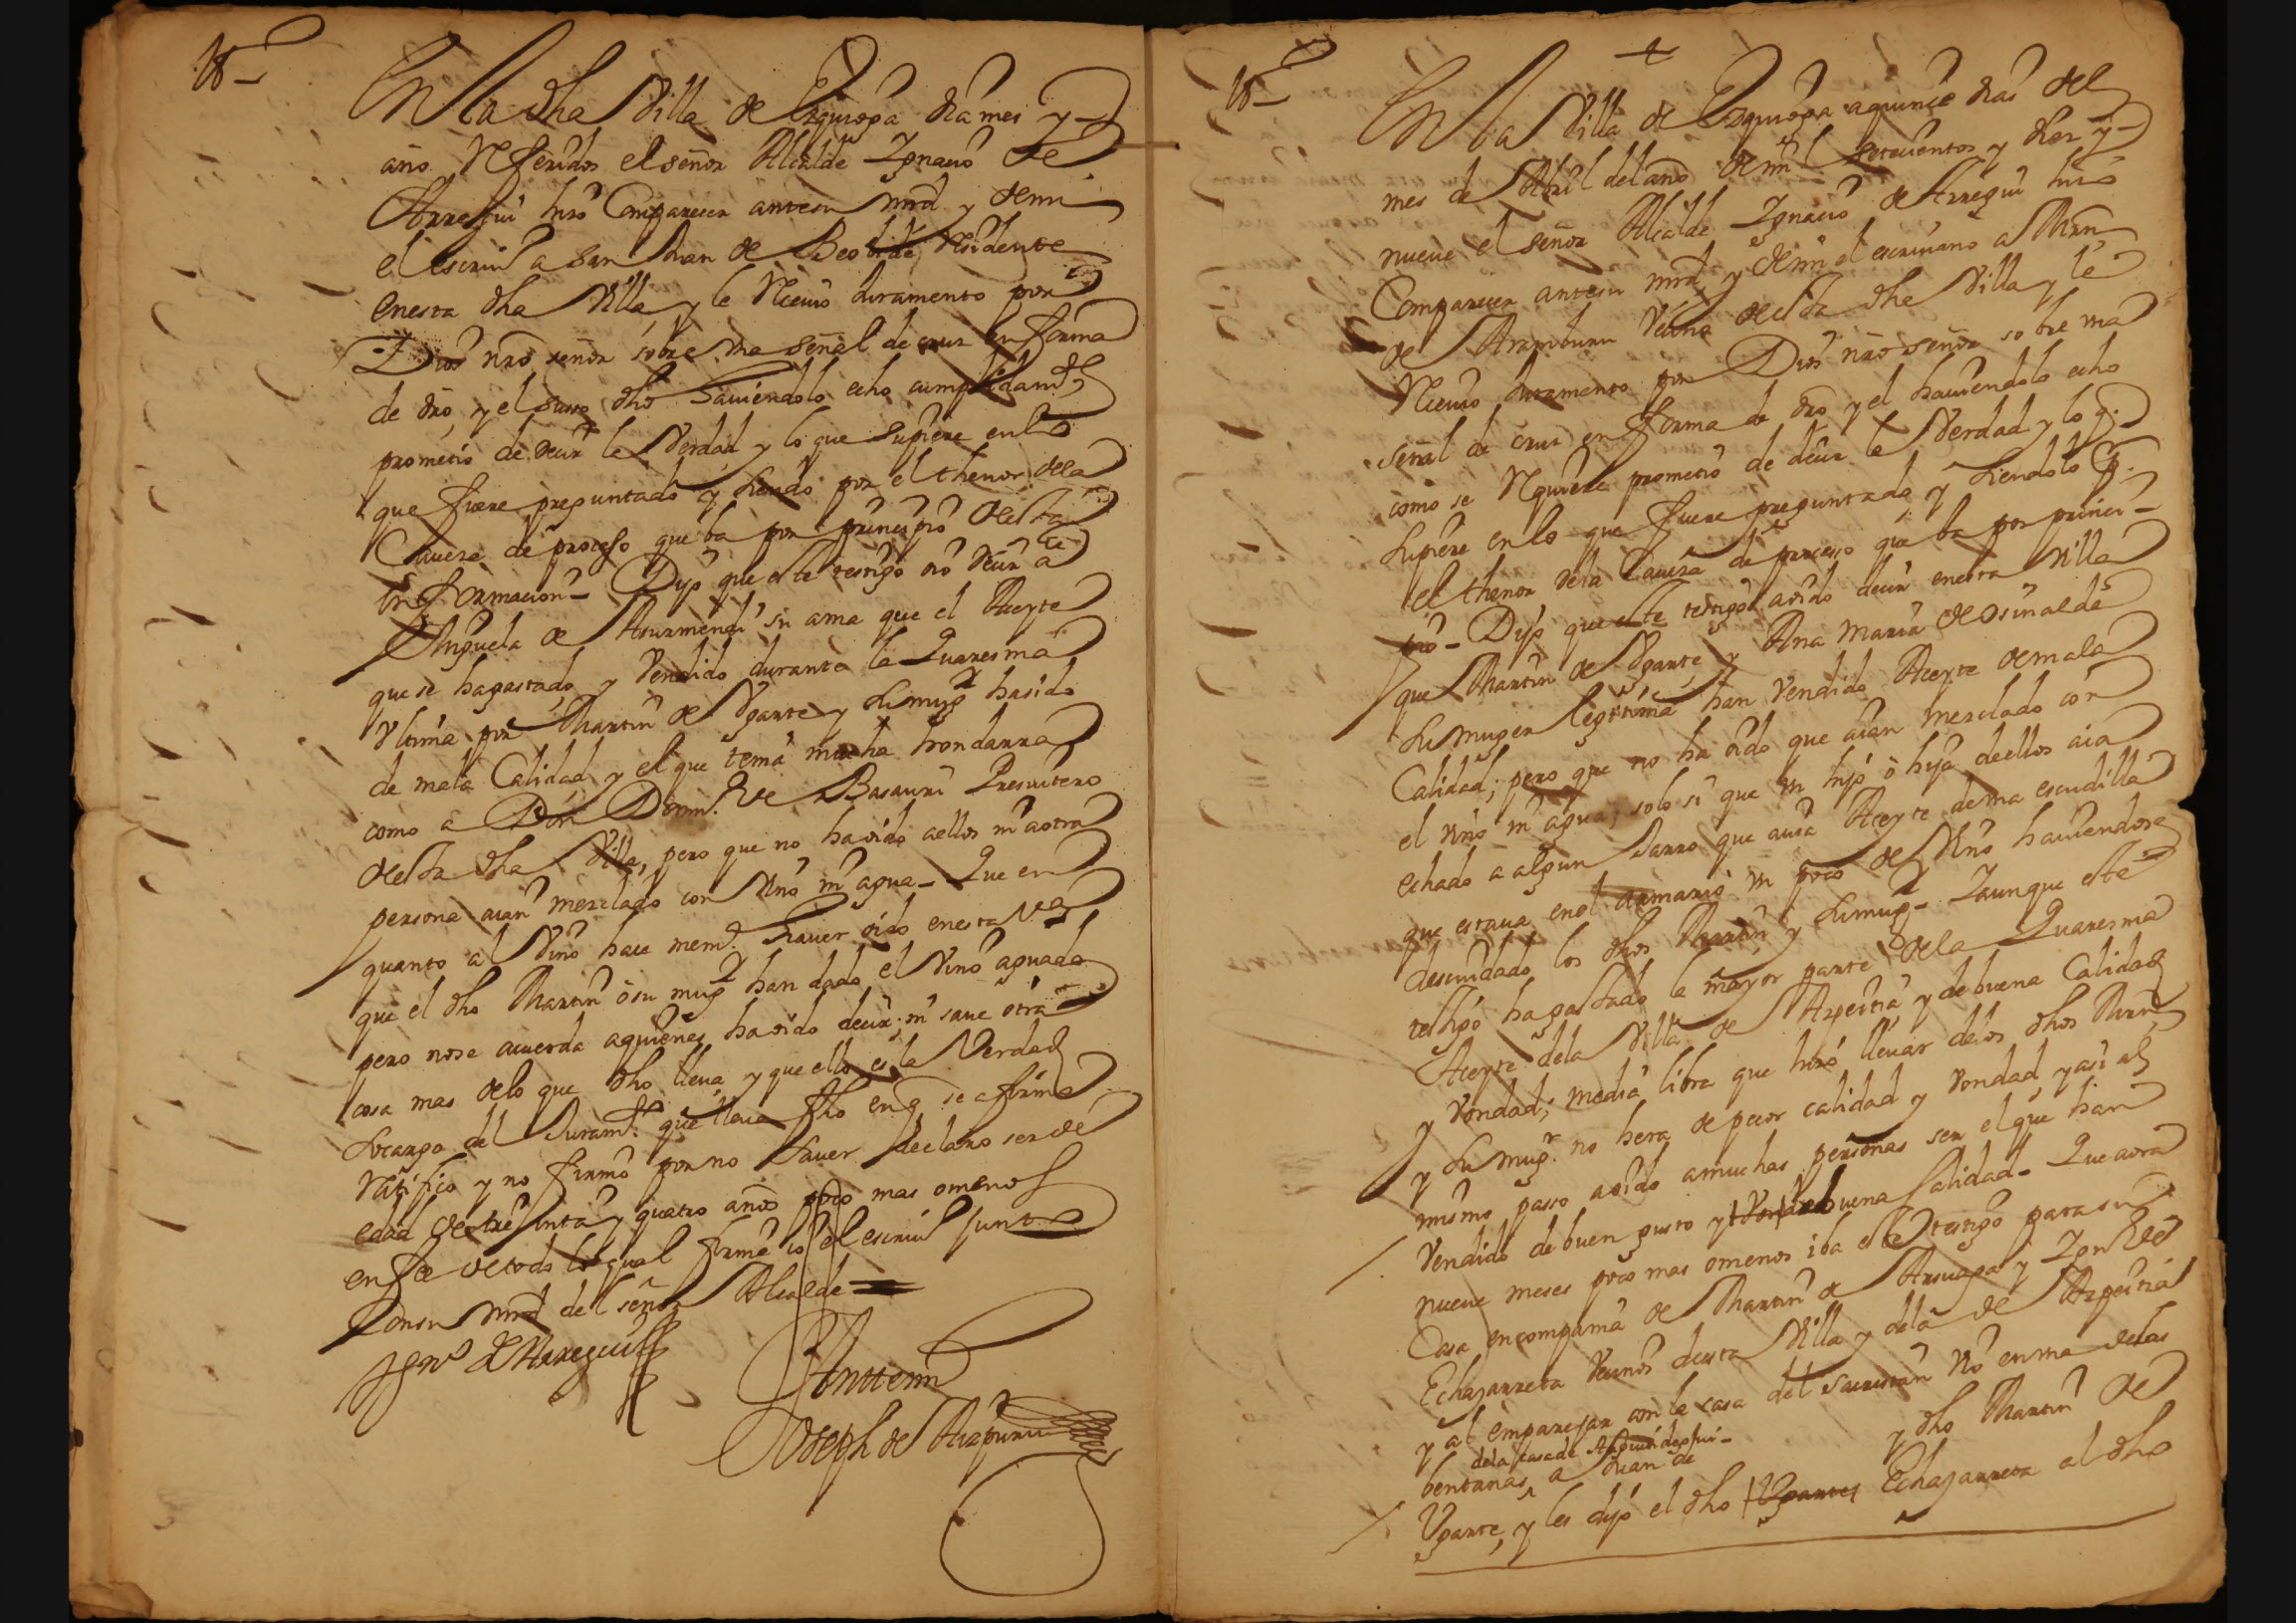 tº
En la dha Villa de Ezquioga dia mes y
año Referidos el señor Alcalde Ignacio de
Arregui hizo Comparecer ante su mrd y de mi
el escriuº a San Juan de Beobide Residente
en esta dha Villa y le Reciuio Juramento por
Dios nro señor sobre vna señal de cruz en forma
de dro, y el suso dho hauiendolo echo cumplidamte
prometio de decir la Verdad y lo que Supiere en lo
que fuere preguntado y siendo por el thenor de la
Caueza de proceso que ba por principio de esta
Informacion - Dijo que este testigo oio decir a
Anguela de Asurmendi su ama que el Aceyte
que se ha gastado y Vendido durante la Quaresma
Vltima por Martin de Vgarte y su mugr ha sido
de mala Calidad y el que tenia mucha hondarra
como a Don Domin. de Basauri Presuitero
de esta dha Villa, pero que no ha oido a ellos ni a otra
persona aian mezclado con Vino ni agua - Que en
quanto al Vino hace mem.a hauer oido en esta Va
que el dho Martin o su mugr han dado el Vino aguado
pero no se acuerda a quienes ha oido decir; ni saue otra
cosa mas de lo que dho lleua y que ello es la Verdad
so cargo del Juramto que lleua fho en q se afirmo
Ratifico y no firmo por no sauer declaro ser de
edad de treinta y quatro años poco mas o menos
en fee de todo lo qual firme io el escriuº junto
con su mrd del señor Alcalde
Ignº de Arregui
Ante mi
Joseph de Aizpuru
tº
En la Villa de Ezquioga a quince dias del
mes de Abril del año de mil setecientos y diez y
nueue el señor Alcalde Ignacio de Arregui hizo
Comparecer ante su mrd y de mi el escriuano a Mrn
de Aramburu Vecino de esta dha Villa y le
Reciuio Juramento por Dios nro señor sobre vna
señal de cruz en forma de dro y el hauiendolo echo
como se Requiere prometio de decir la Verdad y lo q.
Supiere en lo que fuere preguntado y siendolo Pr.
el thenor de la Caueza de processo que ba por princi-
pio - Dijo que este testigo a oido decir en esta Villa
que Martin de Vgarte, y Ana Maria de Osinalde
su muger legitima han Vendido Aceyte de mala
Calidad; pero que no ha oido que aian mezclado con
el vino ni agua; solo si que vn hijo ò hija de ellos aia
echado a algun Jarro que auia Aceyte de vna escudilla
que estaua en el armario vn poco de Vino hauiendose
descuidado los dhos Martin y su mugr - Y aunque este
testigo ha gastado la mayor parte de la Quaresma
Aceyte de la Villa de Azpeitia y de buena Calidad
y Vondad; media libra que hizo lleuar de los dhos Martin
y su mugr. no hera de peor calidad y Vondad, y asi al
mismo passo a oido a muchas personas ser el que han
Vendido de buen gusto y buena Calidad - Que aora
nueue meses poco mas o menos iba este testigo para su
Casa en compania de Martin de Aizuaga y Ign. de
Echajarreta Vecinos de esta Villa y de la de Azpeitia
y al emparejar con la casa del sacristan Vio en vna de las
de la casa de
bentanas a Juan de y dho Martin de
Vgarte, y les dijo el dho Vgarte Echajarreta al dho